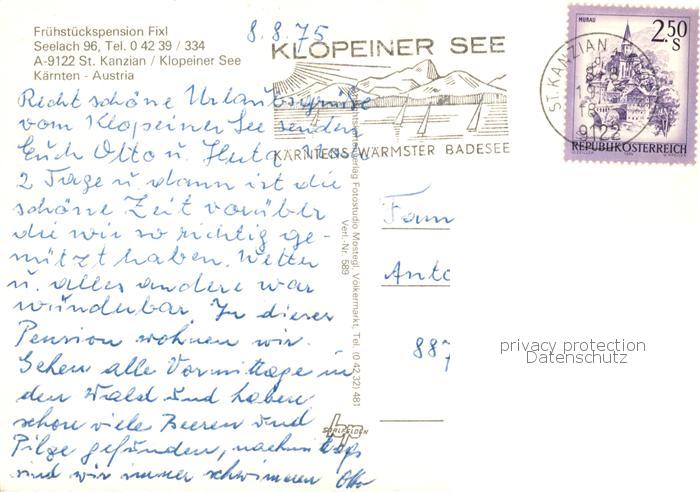 Frühstückspension Fixl
Seelach 96, Tel. 0 42 39 / 334
A-9122 St. Kanzian / Klopeiner See
Kärnten - Austria
8.8.75
KLOPEINER SEE
KÄRNTENS WÄRMSTER BADESEE
MURAU
2.50
S
REPUBLIK ÖSTERREICH
ST. KANZIAN
9122
Recht schöne Urlaubsgrüsse
vom Klopeiner See senden
Euch Otto u. Herta. Noch
2 Tage u. dann ist die
schöne Zeit vorüber
die wir so richtig ge-
nützt haben. Wetter
u. alles andere war
wunderbar. In dieser
Pension wohnen wir.
Gehen alle Vormittage in
den Wald und haben
schon viele Beeren und
Pilze gefunden, nachm
sind wir immer schwimmen Otto
Verlag Fotostudio Mostegl, Völkermarkt, Tel. (0 42 32) 481
Verl.-Nr. 589
hp
SAALFELDEN
Fam
Anto
887
privacy protection
Datenschutz